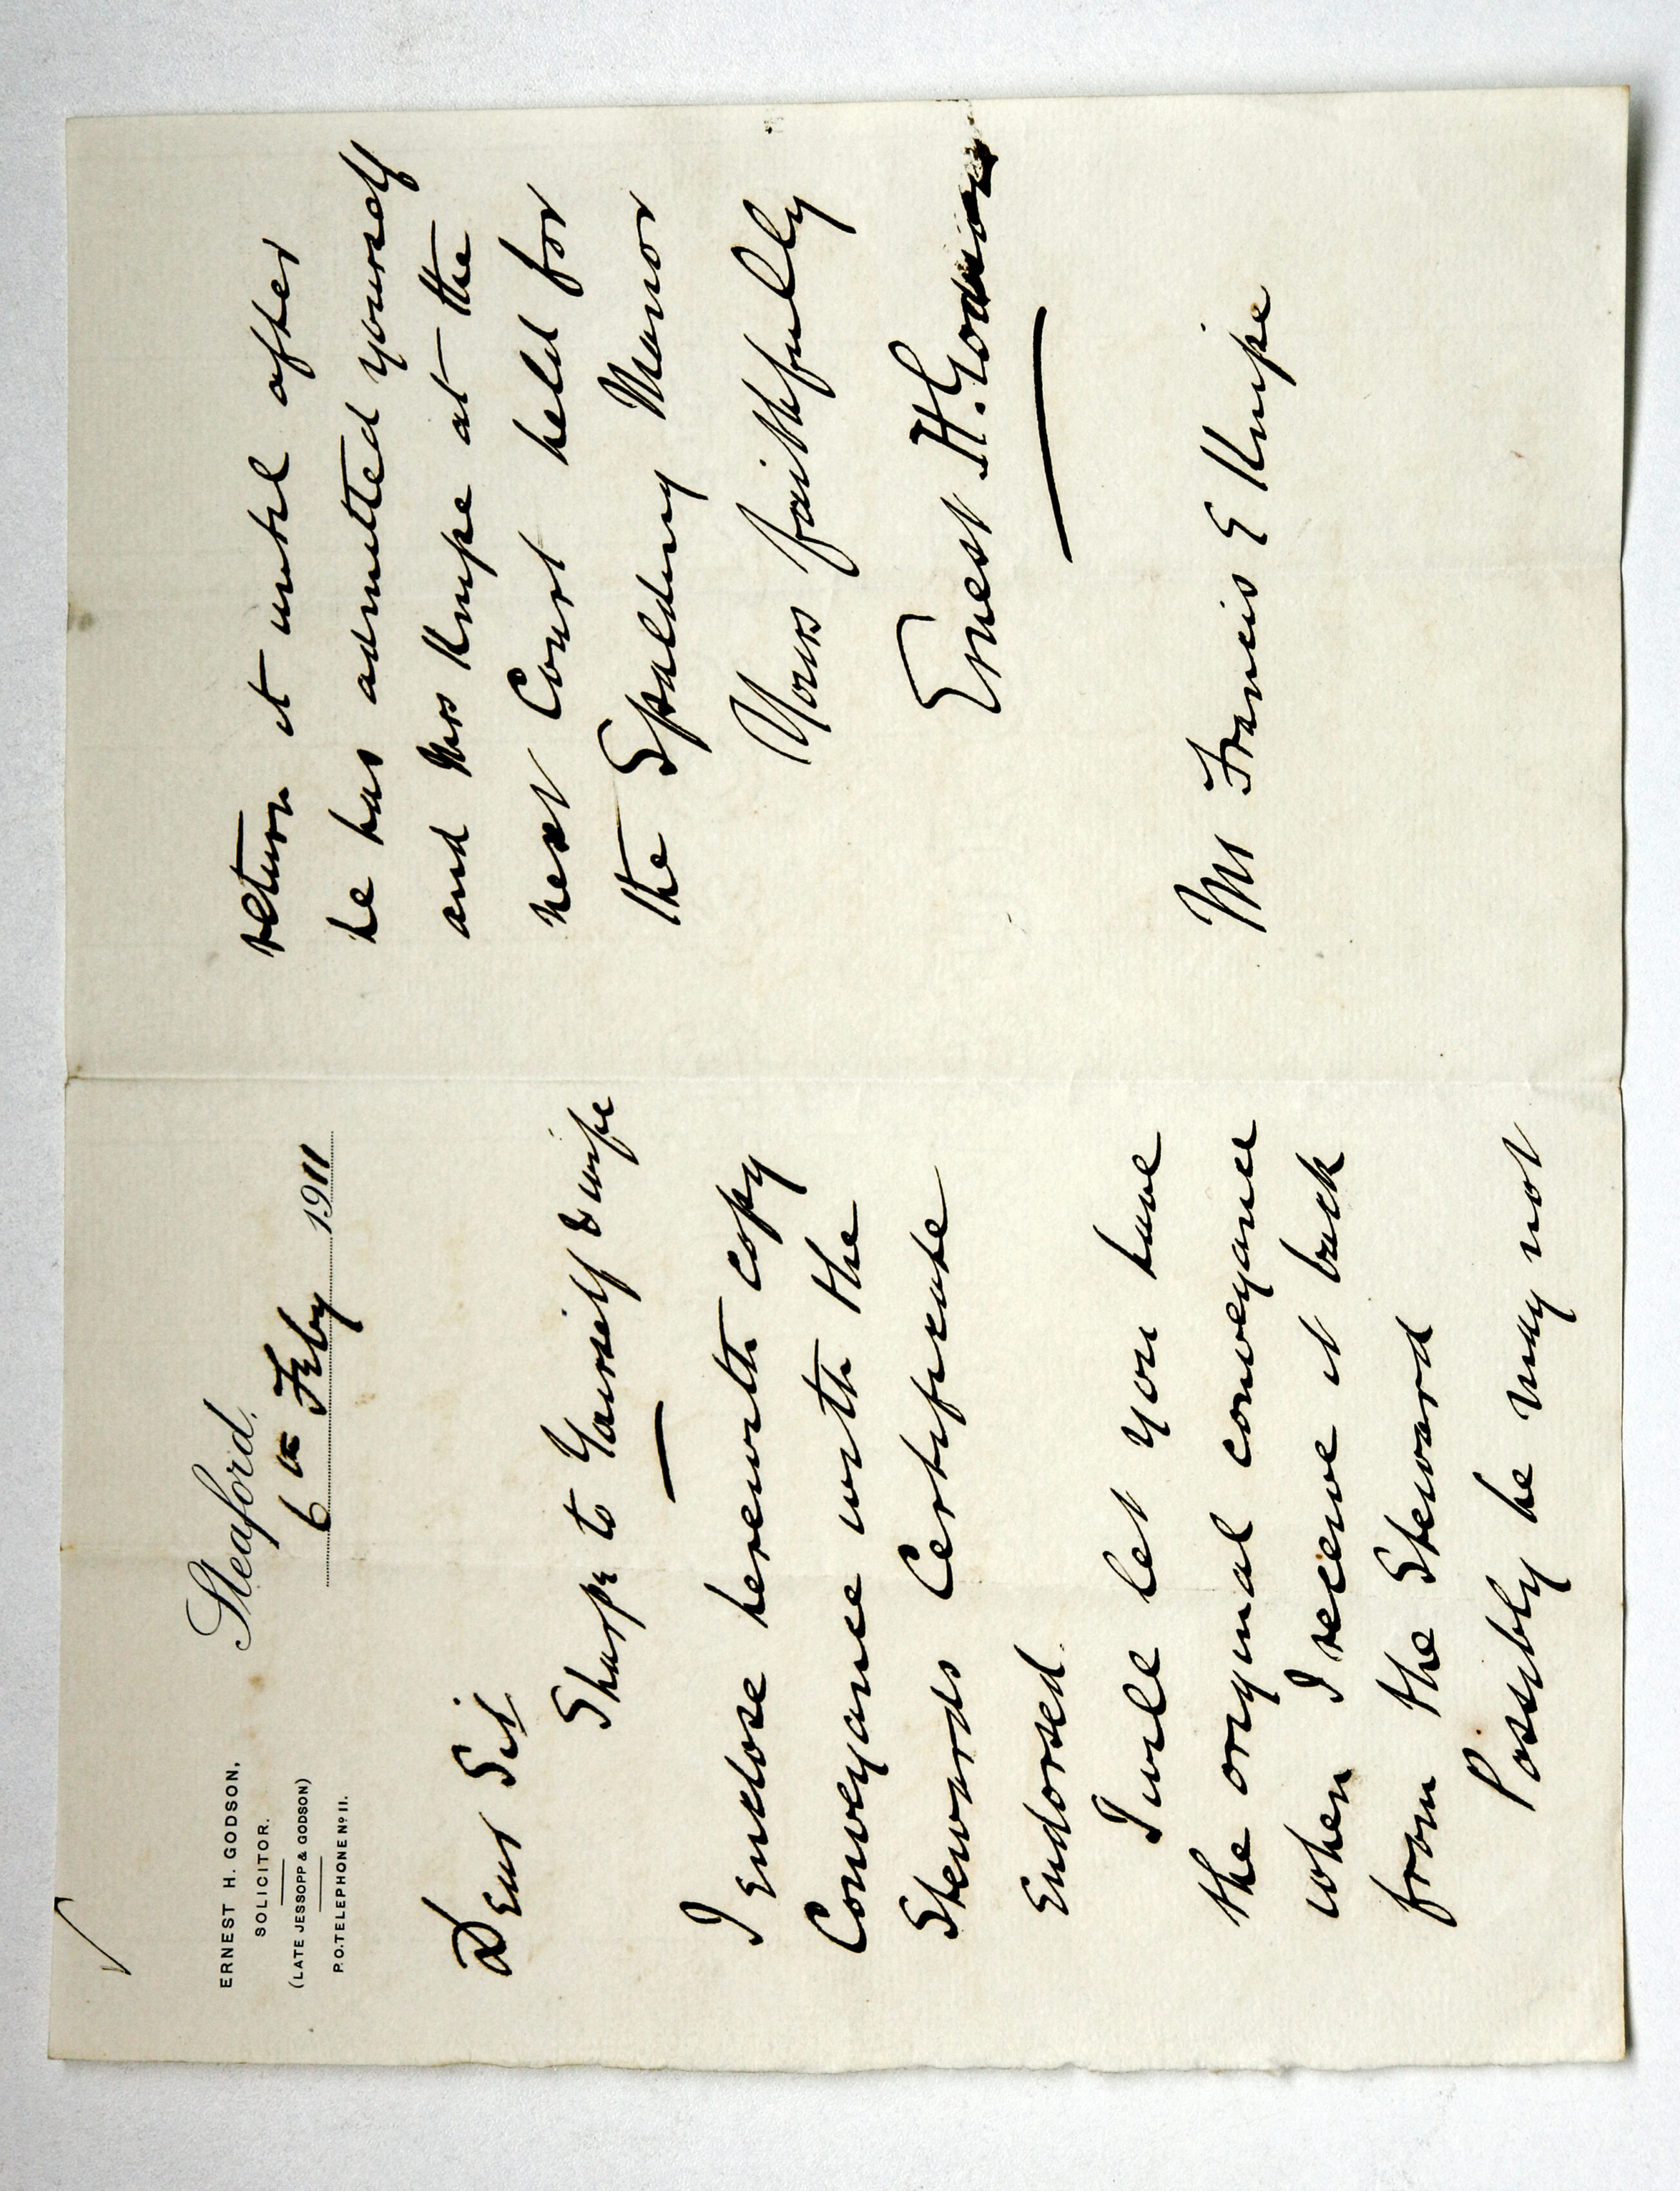 ERNEST H. GODSON,
SOLICITOR.
(LATE JESSOPP & GODSON)
P.O. TELEPHONE Nº 11.
Sleaford,
6th Feby 1911
Dear Sir
Sharpe to Yourself & wife
I enclose herewith copy
Conveyance with the
Stewards Certificate
Endorsed.
I will let you have
the original conveyance
when I receive it back
from the Steward
Possibly he may not
return it until after
he has admitted yourself
and Mrs Knipe at the
next Court held for
the Spalding Manor
Yours faithfully
Ernest H. Godson
Mr Francis E Knipe